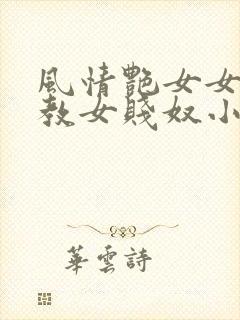 風情艷女女
教女賤奴小
華雲詩